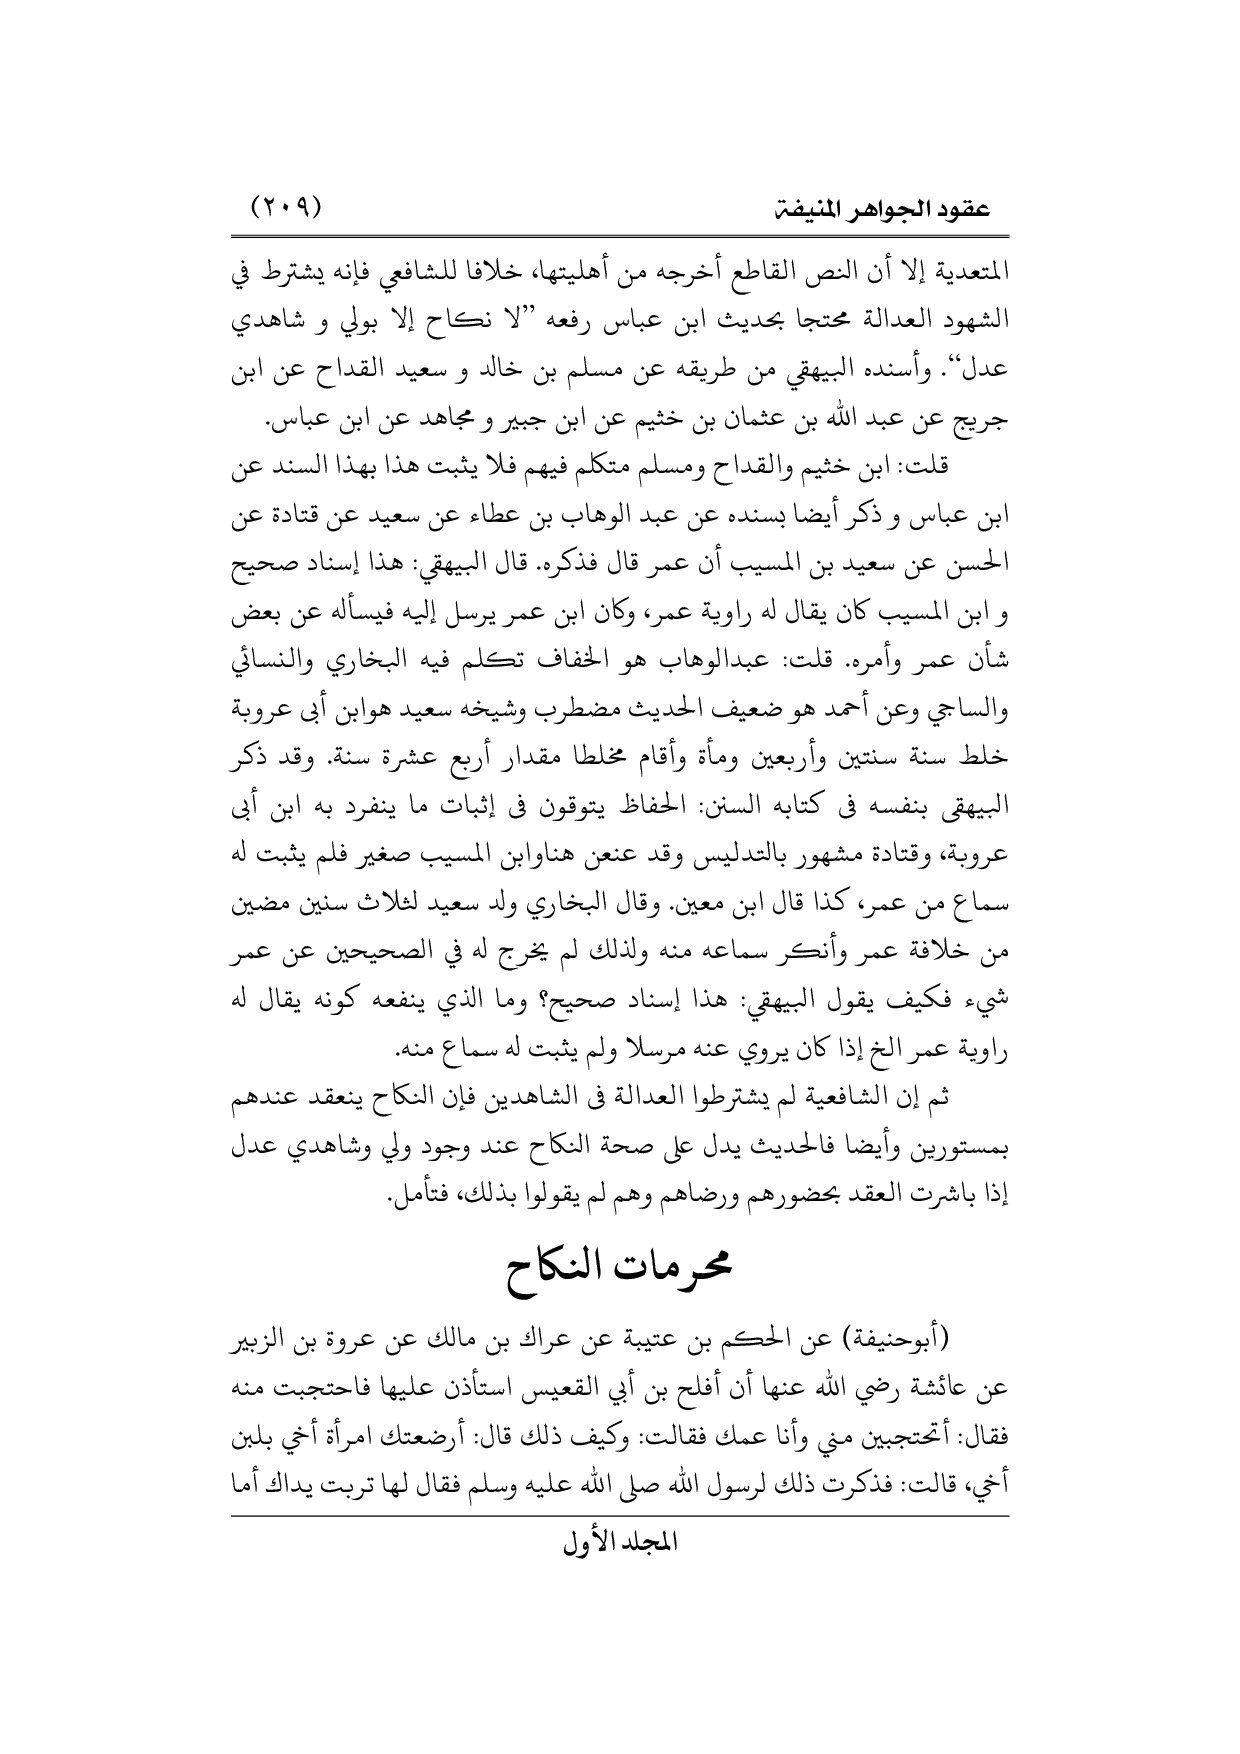 عقود الجواهر المنيفة (٢٠٩)
المتعدية إلا أن النص القاطع أخرجه من أهليتها، خلافا للشافعي فإنه يشترط في
الشهود العدالة محتجا بحديث ابن عباس رفعه ”لا نكاح إلا بولي و شاهدي
عدل“. وأسنده البيهقي من طريقه عن مسلم بن خالد و سعيد القداح عن ابن
جريج عن عبد الله بن عثمان بن خثيم عن ابن جبير و مجاهد عن ابن عباس.
قلت: ابن خثيم والقداح ومسلم متكلم فيهم فلا يثبت هذا بهذا السند عن
ابن عباس و ذكر أيضا بسنده عن عبد الوهاب بن عطاء عن سعيد عن قتادة عن
الحسن عن سعيد بن المسيب أن عمر قال فذكره. قال البيهقي: هذا إسناد صحيح
و ابن المسيب كان يقال له راوية عمر، وكان ابن عمر يرسل إليه فيسأله عن بعض
شأن عمر وأمره. قلت: عبدالوهاب هو الخفاف تكلم فيه البخاري والنسائي
والساجي وعن أحمد هو ضعيف الحديث مضطرب وشيخه سعيد هوابن أبى عروبة
خلط سنة سنتين وأربعين ومأة وأقام مخلطا مقدار أربع عشرة سنة. وقد ذكر
البيهقى بنفسه فى كتابه السنن: الحفاظ يتوقون فى إثبات ما ينفرد به ابن أبى
عروبة، وقتادة مشهور بالتدليس وقد عنعن هناوابن المسيب صغير فلم يثبت له
سماع من عمر، كذا قال ابن معين. وقال البخاري ولد سعيد لثلاث سنين مضين
من خلافة عمر وأنكر سماعه منه ولذلك لم يخرج له في الصحيحين عن عمر
شيء فكيف يقول البيهقي: هذا إسناد صحيح؟ وما الذي ينفعه كونه يقال له
راوية عمر الخ إذا كان يروي عنه مرسلا ولم يثبت له سماع منه.
ثم إن الشافعية لم يشترطوا العدالة فى الشاهدين فإن النكاح ينعقد عندهم
بمستورين وأيضا فالحديث يدل على صحة النكاح عند وجود ولي وشاهدي عدل
إذا باشرت العقد بحضورهم ورضاهم وهم لم يقولوا بذلك، فتأمل.
محرمات النكاح
(أبوحنيفة) عن الحكم بن عتيبة عن عراك بن مالك عن عروة بن الزبير
عن عائشة رضي الله عنها أن أفلح بن أبي القعيس استأذن عليها فاحتجبت منه
فقال: أتحتجبين مني وأنا عمك فقالت: وكيف ذلك قال: أرضعتك امرأة أخي بلبن
أخي، قالت: فذكرت ذلك لرسول الله صلى الله عليه وسلم فقال لها تربت يداك أما
المجلد الأول